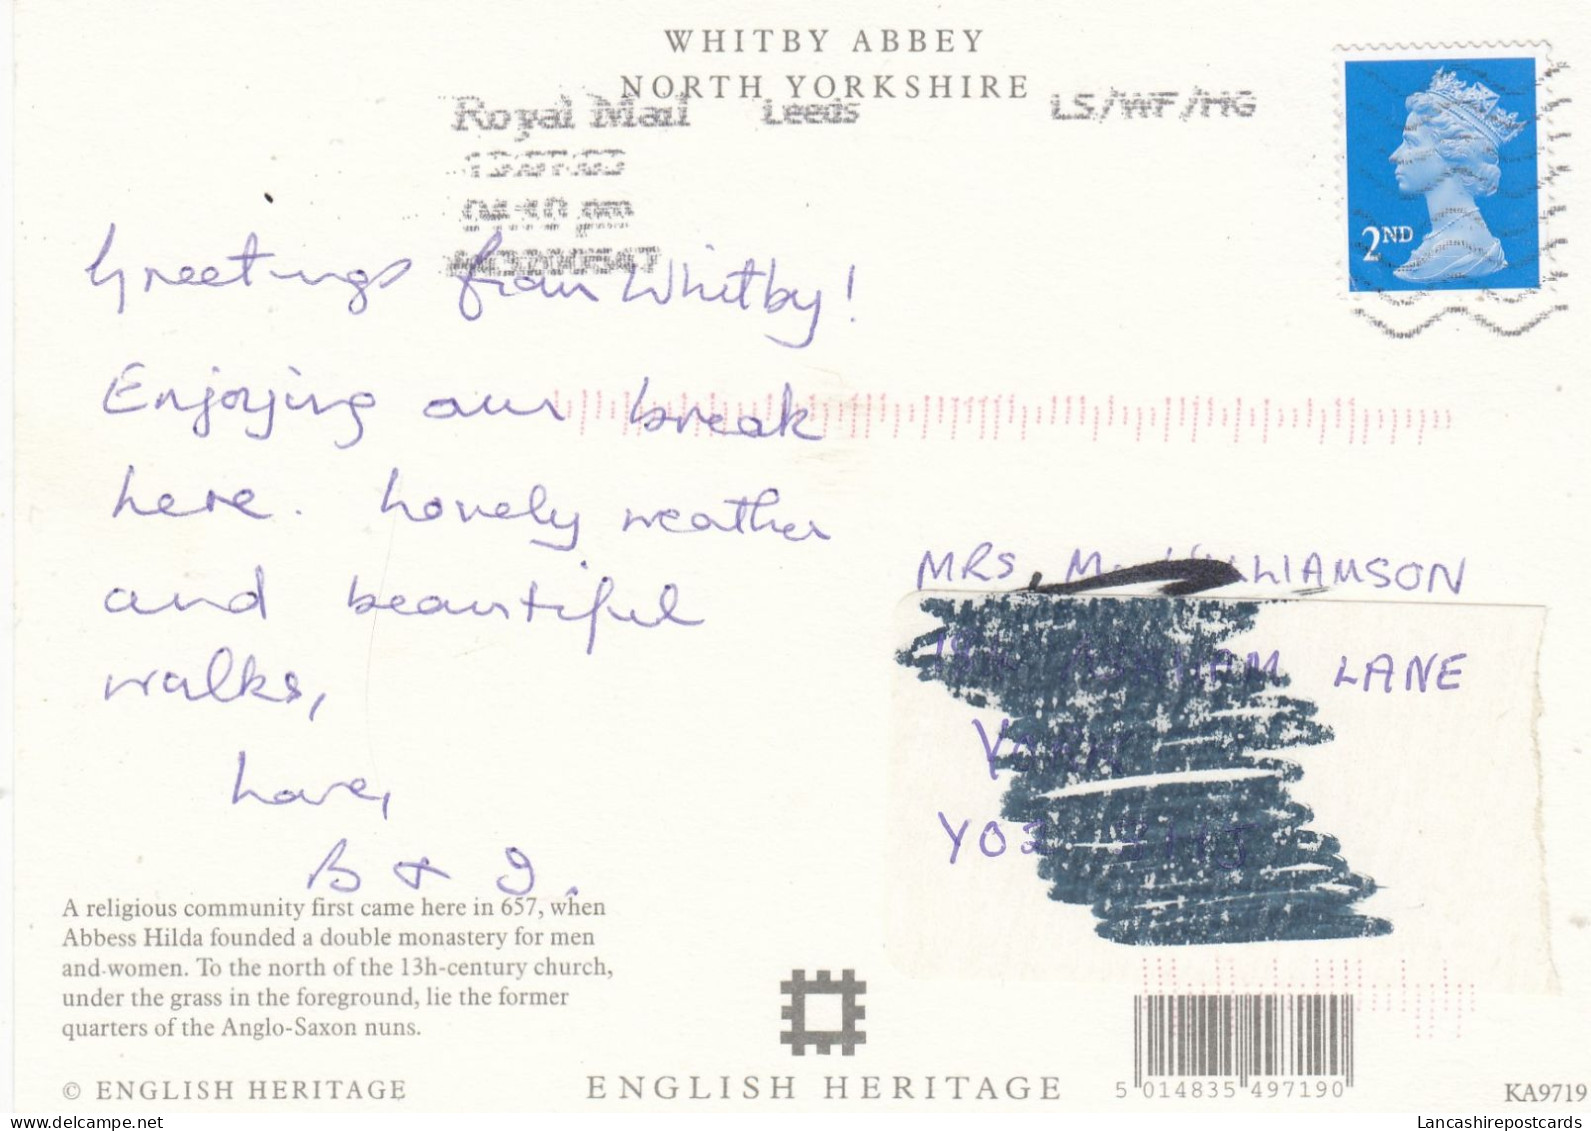 WHITBY ABBEY
NORTH YORKSHIRE
Royal Mail Leeds LS/WF/HG
13.07.03
pm
2ND
Greetings from Whitby!
Enjoying our break
here. Lovely weather
and beautiful
walks,
Love,
B + J.
MRS
LANE
YORK
YO3
A religious community first came here in 657, when
Abbess Hilda founded a double monastery for men
and women. To the north of the 13h-century church,
under the grass in the foreground, lie the former
quarters of the Anglo-Saxon nuns.
© ENGLISH HERITAGE
ENGLISH HERITAGE
5 014835 497190
KA9719
Lancashirepostcards